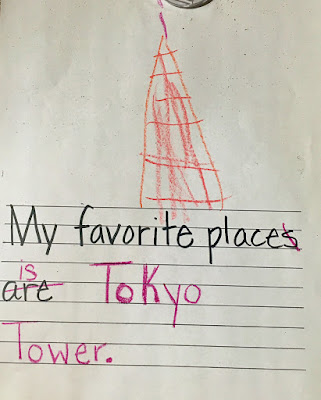 My favorite places
is
are Tokyo
Tower.